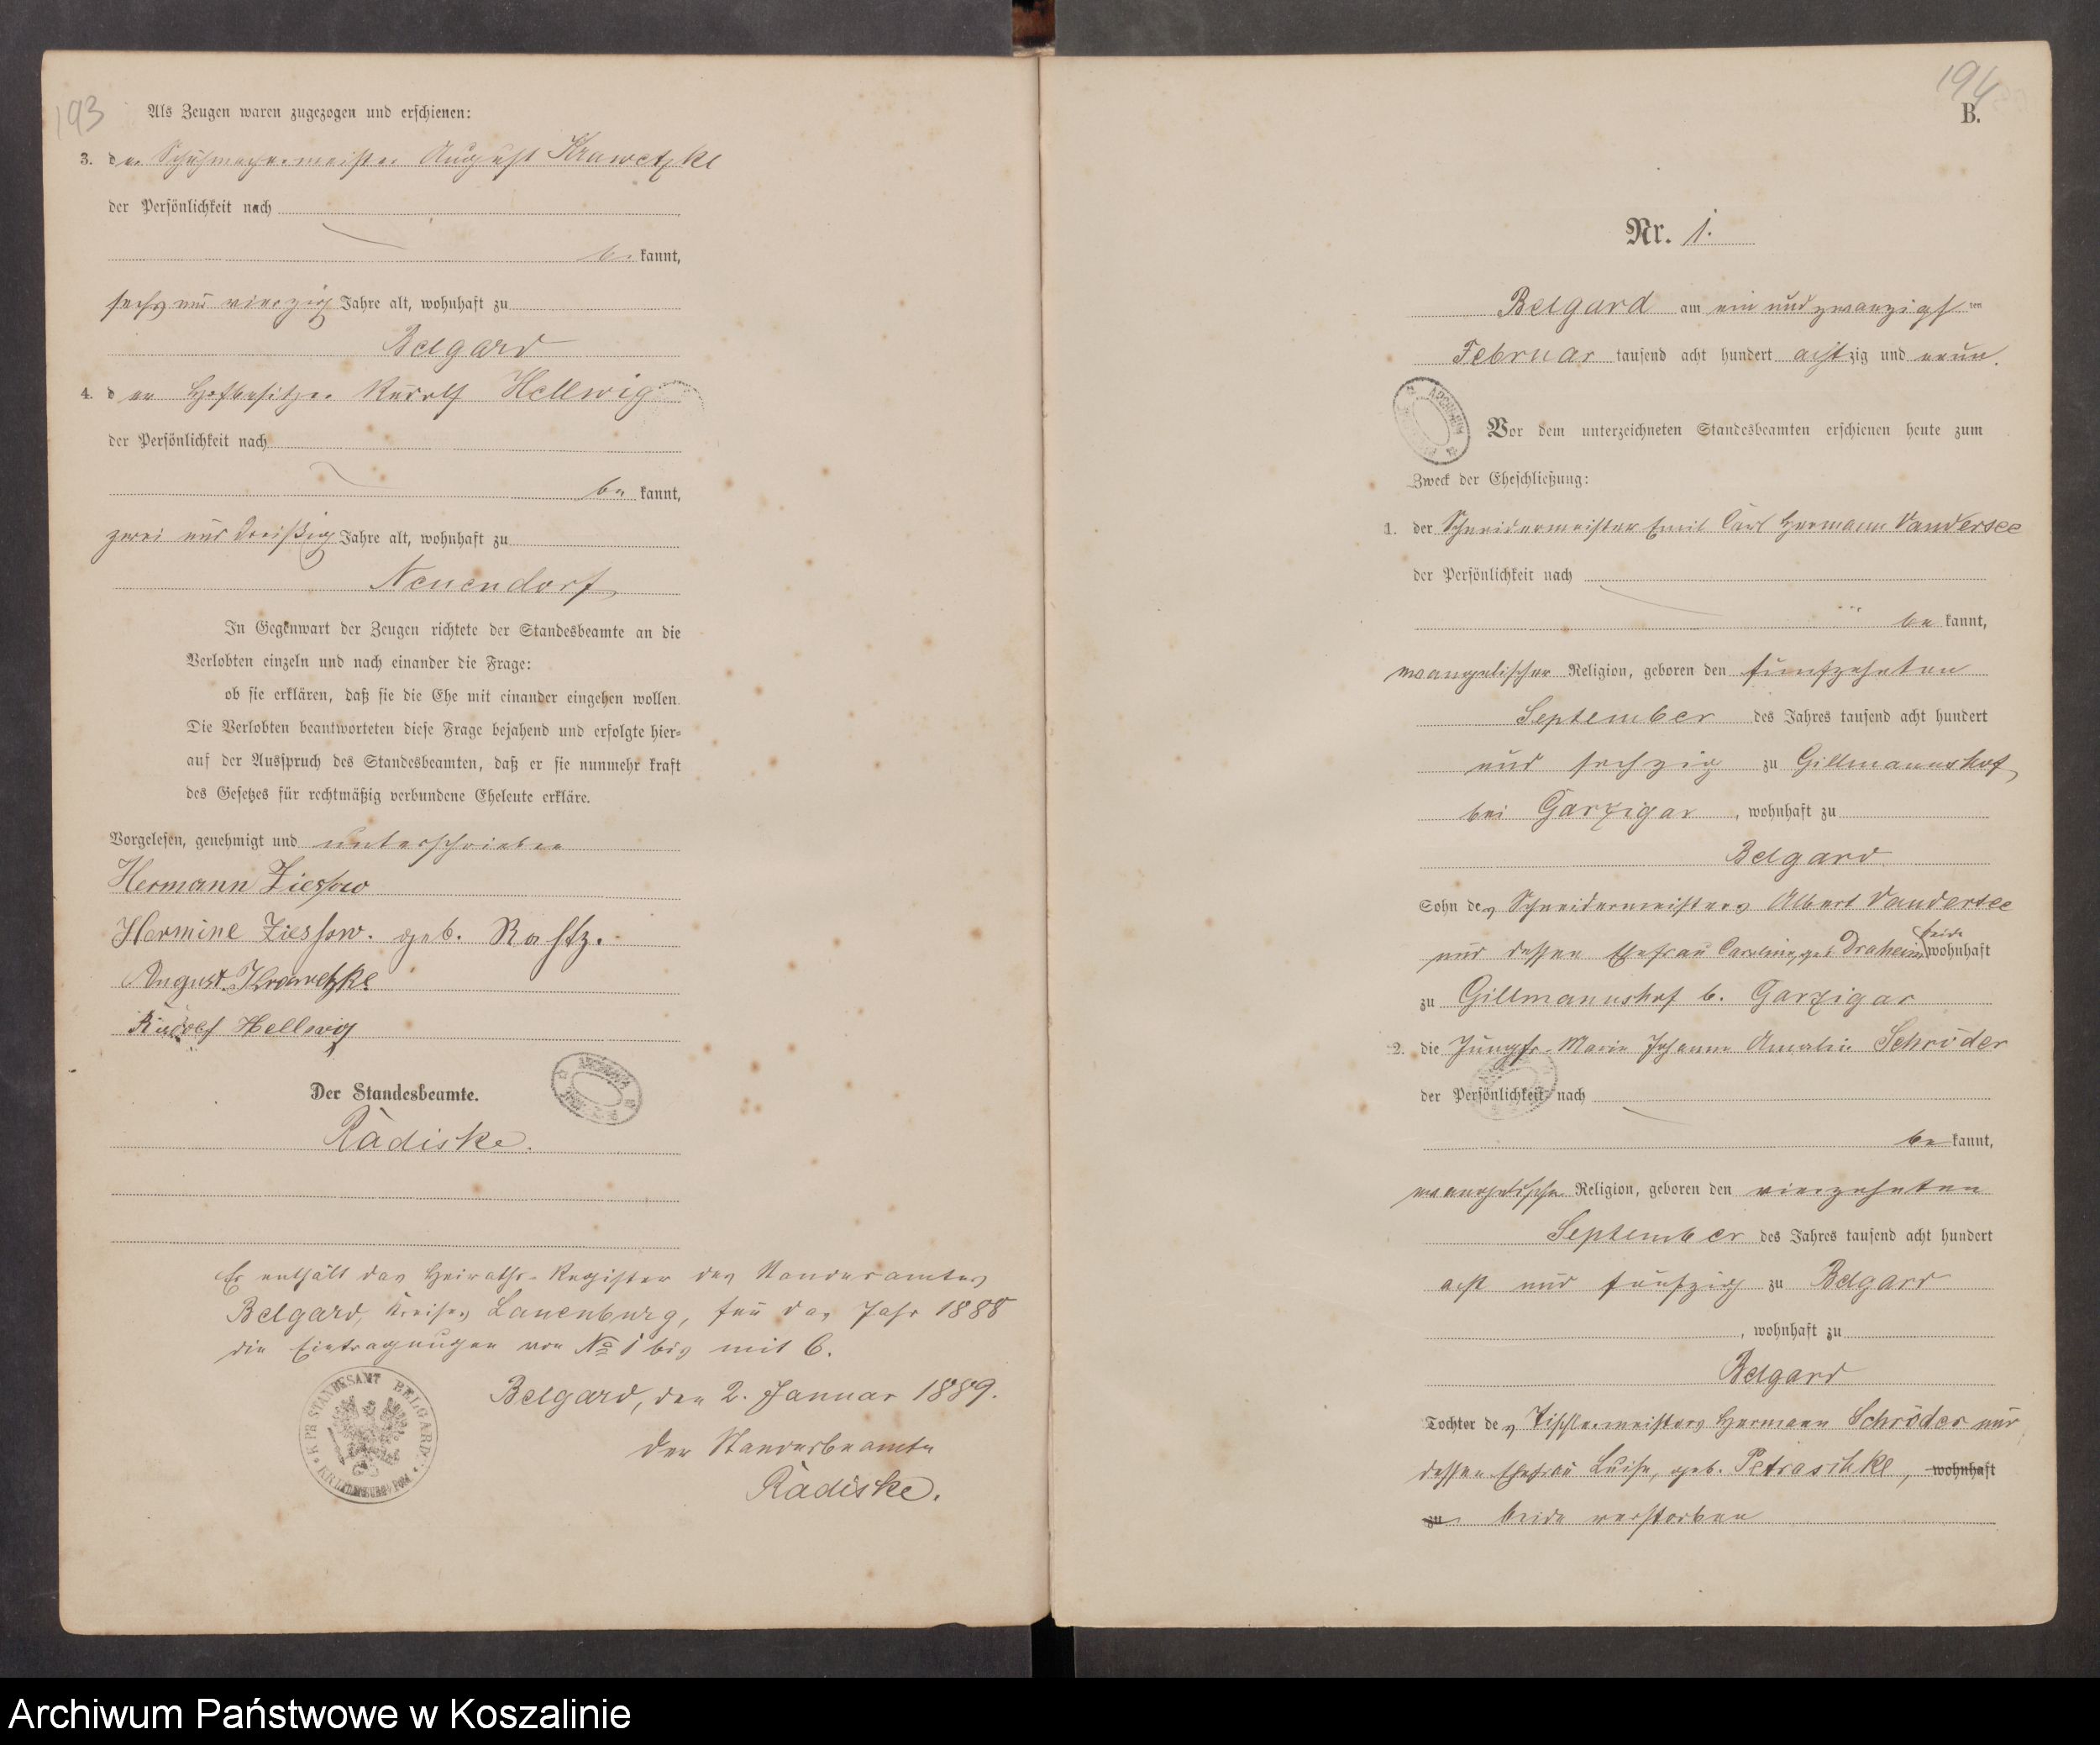 193
Als Zeugen waren zugezogen und erschienen:
3. der Schuhmachermeister August Krawetzke
der Persönlichkeit nach
be kannt,
sechs und vierzig Jahre alt, wohnhaft zu
Belgard
4. der Hofbesitzer Rudolf Hellwig
der Persönlichkeit nach
be kannt,
zwei und dreißig Jahre alt, wohnhaft zu
Neuendorf
In Gegenwart der Zeugen richtete der Standesbeamte an die
Verlobten einzeln und nach einander die Frage:
ob sie erklären, daß sie die Ehe mit einander eingehen wollen.
Die Verlobten beantworteten diese Frage bejahend und erfolgte hier-
auf der Ausspruch des Standesbeamten, daß er sie nunmehr kraft
des Gesetzes für rechtmäßig verbundene Eheleute erkläre.
Vorgelesen, genehmigt und unterschrieben
Hermann Ziessow
Hermine Ziessow. geb.
August Krawetzke
Rudolf Hellwig
Der Standesbeamte.
Radiske.
Es enthält das Heiraths-Register des Standesamtes
Belgard, Kreises Lauenburg, für das Jahr 1888
die Eintragungen von No 1 bis mit 6.
K. PR. STANDESAMT BELGARD
Belgard, den 2. Januar 1889.
Der Standesbeamte
Radiske.
194
B.
Nr. 1.
Belgard am ein und zwanzigsten
Februar tausend acht hundert achtzig und neun.
Vor dem unterzeichneten Standesbeamten erschienen heute zum
Zweck der Eheschließung:
1. der Schneidermeister Emil Carl Hermann Vandersee
der Persönlichkeit nach
be kannt,
evangelischer Religion, geboren den fünfzehnten
September des Jahres tausend acht hundert
und sechzig zu Gillmannshof
bei Garzigar, wohnhaft zu
Belgard
Sohn des Schneidermeisters Albert Vandersee
und dessen Ehefrau Caroline, geb. Draheim beide wohnhaft
zu Gillmannshof b. Garzigar
2. die Jungfr. Marie Johanne Amalie Schröder
der Persönlichkeit nach
be kannt,
evangelischer Religion, geboren den vierzehnten
September des Jahres tausend acht hundert
acht und fünfzig zu Belgard
, wohnhaft zu
Belgard
Tochter des Tischlermeisters Hermann Schröder und
dessen Ehefrau Luise, geb. Petraschke, wohnhaft
zu beide verstorben
Archiwum Państwowe w Koszalinie